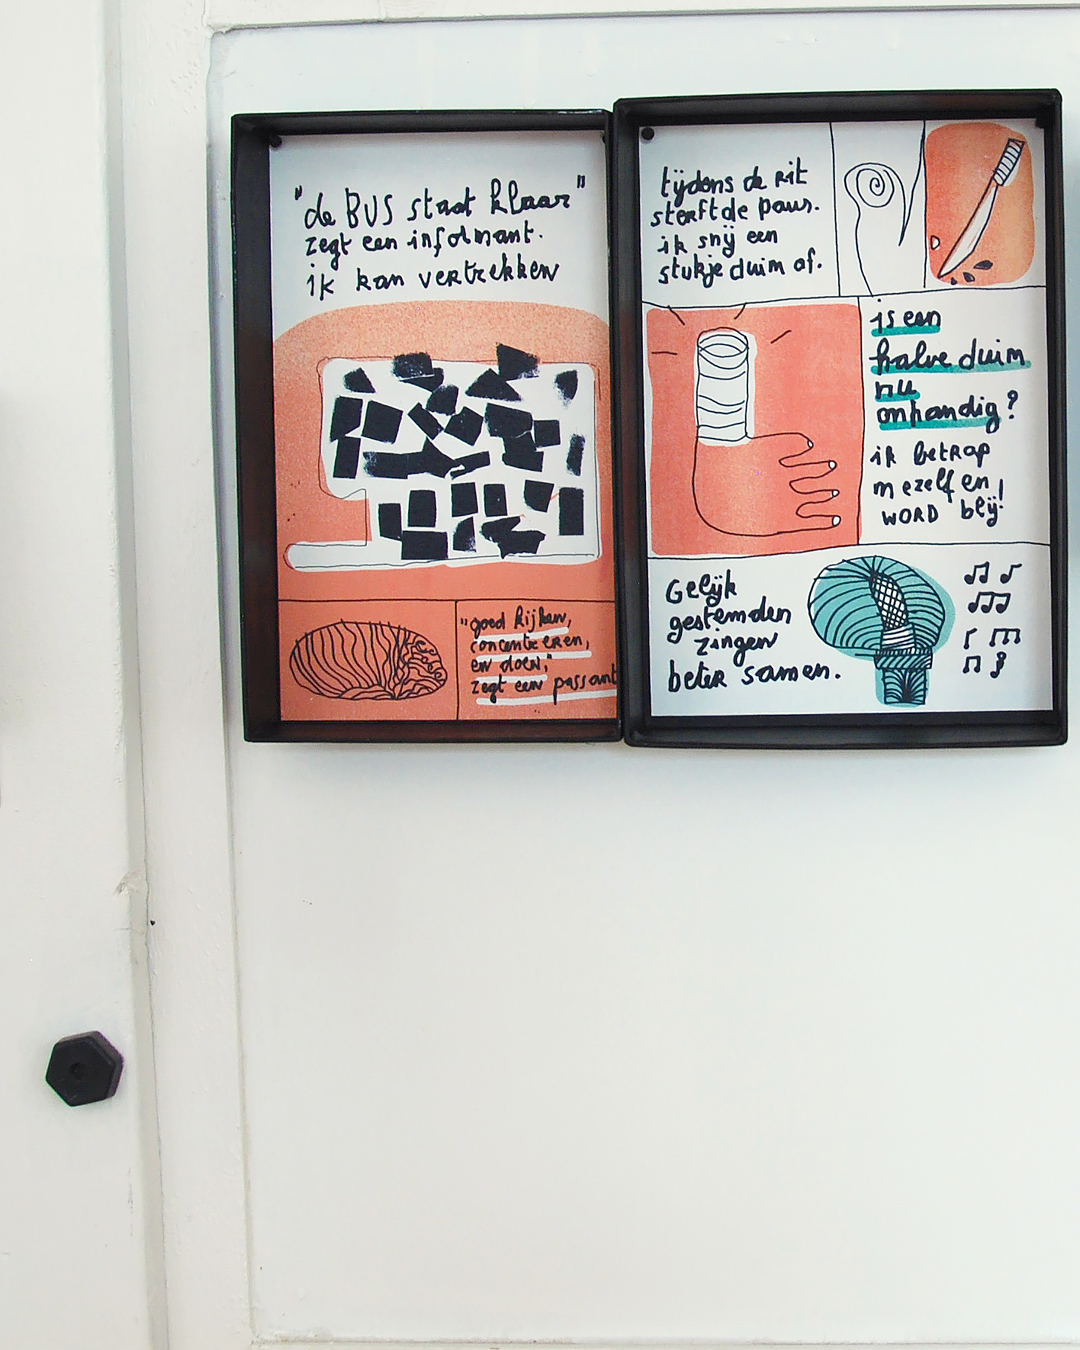 "de BUS staat klaar"
zegt een informant.
ik kan vertrekken
"goed kijken,
concentreren,
en doen,"
zegt een passant
tijdens de rit
sterft de paus.
ik snij een
stukje duim af.
is een
halve duim
nu
onhandig?
ik betrap
mezelf en
WORD blij!
Gelijk
gestemden
zingen
beter samen.